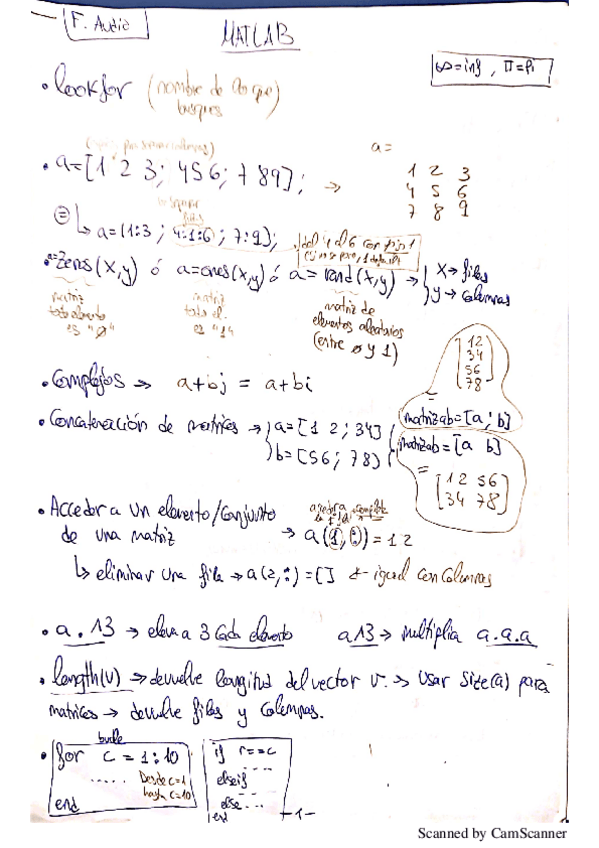 F. Audio
MATLAB
∞=inf, π=Pi
• lookfor (nombre de lo que
busques)
• a=[1 2 3; 4 5 6; 7 8 9]; →
a=
1 2 3
4 5 6
7 8 9
⊜ ↳ a=(1:3; 4:1:6; 7:9);
del 4 al 6 con paso 1
a=zeros(x,y) ó a=ones(x,y) ó a=rand(x,y) → x→ filas
y→ columnas
matriz
todo elemento
es "0"
matriz
todo el.
es "1"
matriz de
elementos aleatorios
(entre 0 y 1)
• Complejos → a+bj = a+bi
[12
34
56
78]
matrizab=[a; b]
• Concatenación de matrices → a=[1 2; 34]
b=[56; 78)
matrizab=[a b]
= [1 2 56
34 78]
• Acceder a un elemento/conjunto
de una matriz → a(1,:)=1 2
↳ eliminar una fila → a(2,:)=[] ← igual con columnas
• a.^3 → eleva a 3 cada elemento a^3 → multiplia a.a.a
• length(v) → devuelve longitud del vector v. → usar size(a) para
matrices → devuelve filas y columnas.
bucle
• for c = 1:10
..... Desde c=1
hasta c=10
end
if r==c
....
elseif
....
else ...
end
-1-
Scanned by CamScanner